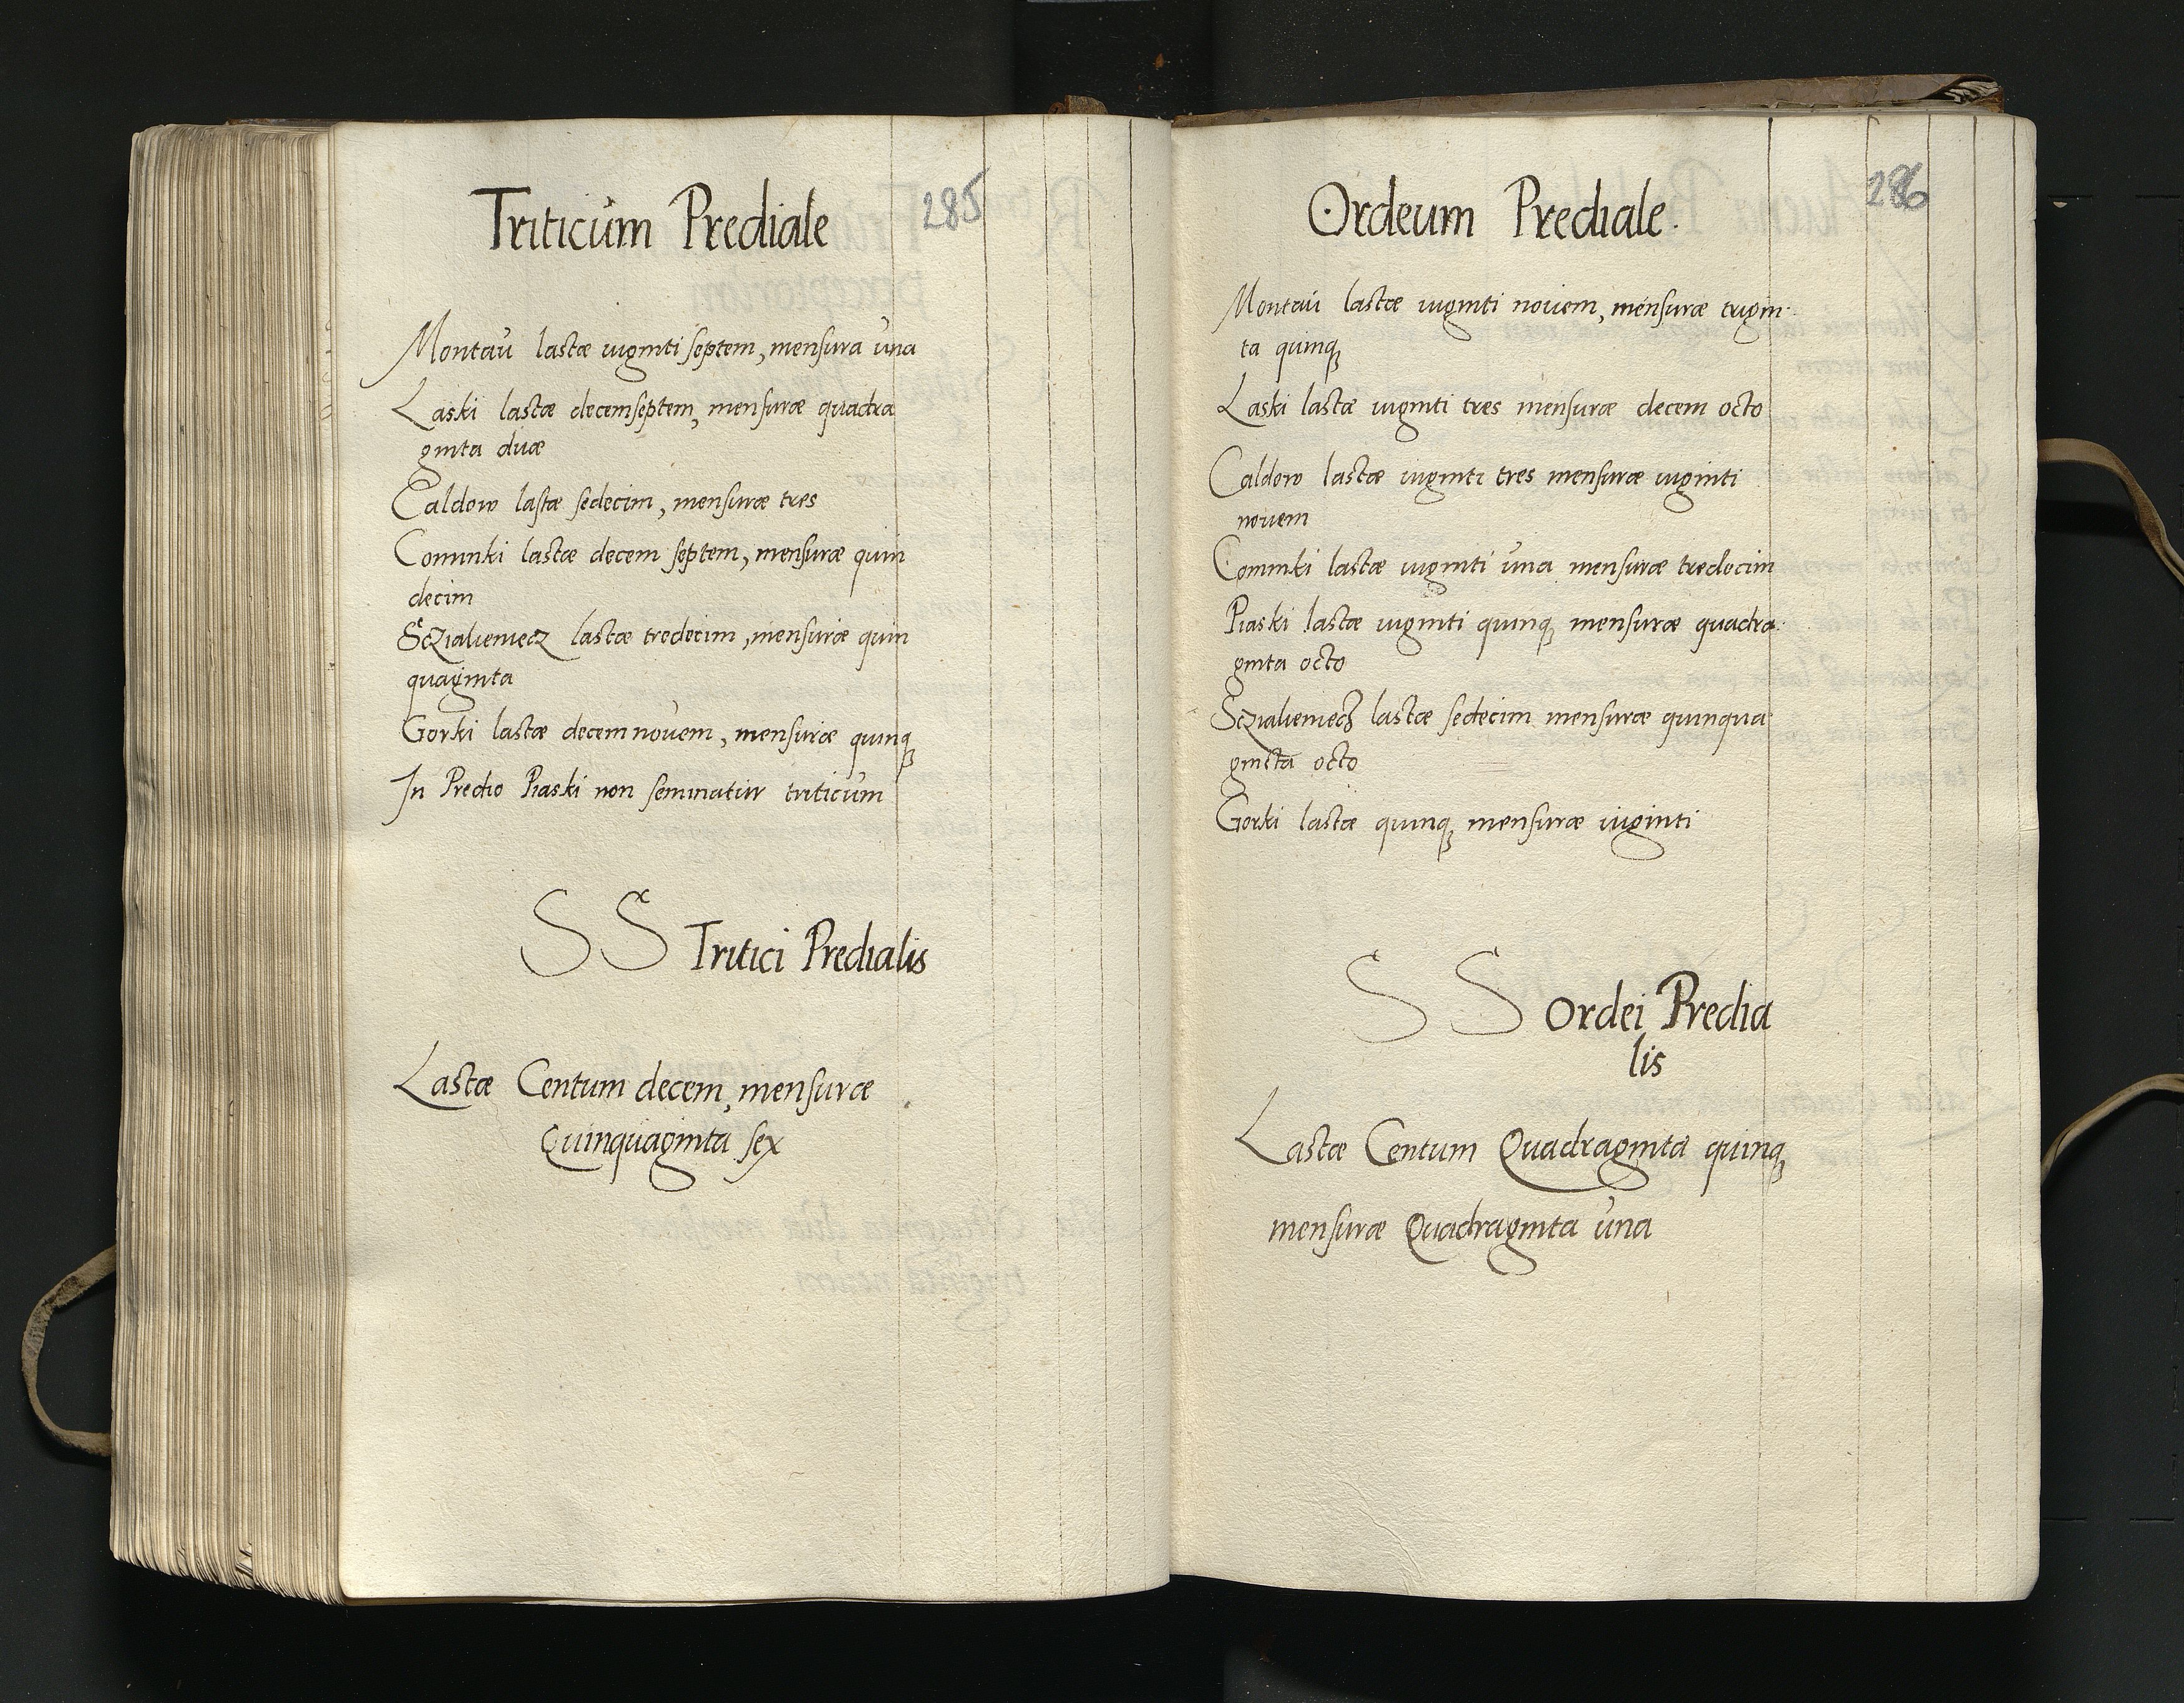 Triticum Prediale 285
Montau lastæ viginti septem, mensura una
Laski lastæ decemseptem, mensuræ quadra
ginta duæ
Caldow lastæ sedecim, mensuræ tres
Cominki lastæ decem septem, mensuræ quin
decim
Scziavieniecz lastæ tredecim, mensuræ quin
quaginta
Gorki lastæ decemnovem, mensuræ quinq
In Predio Piaski non seminatur triticum
SS Tritici Predialis
Lastæ Centum decem, mensuræ
Quinquaginta sex
Ordeum Prediale. 286
Montau lastæ viginti novem, mensuræ trigin
ta quinq
Laski lastæ viginti tres mensuræ decem octo
Caldow lastæ viginti tres mensuræ viginti
novem
Cominki lastæ viginti una mensuræ tredecim
Piaski lastæ viginti quinq mensuræ quadra
ginta octo
Scziavieniecz lastæ sedecim mensuræ quinqua
gincta octo
Gorki lastæ quinq mensuræ viginti
SS Ordei Predia
lis
Lastæ Centum Quadraginta quinq
mensuræ Quadraginta una